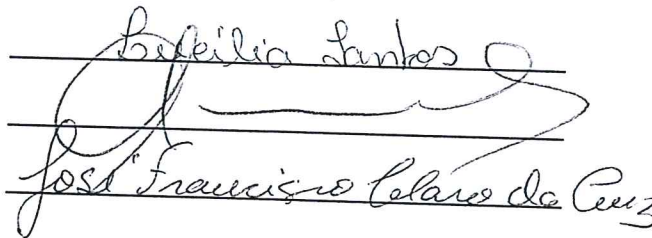 Lucília Santos
José Francisco Claro da Cruz